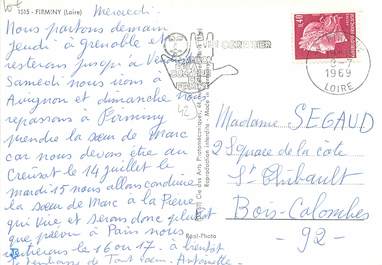 Mercredi.
1515 - FIRMINY (Loire)
Nous partons demain
jeudi à Grenoble et
resterons jusqu'à Vendredi
Samedi nous irons à
Avignon et dimanche nous
repassons à Firminy
prendre la sœur de Marc
car nous devons être au
Creusot le 14 juillet le
mardi 15 nous allons conduire
la sœur de Marc à la
qui vive et serons donc plutôt
que prévu à Paris nous
le 16 ou 17. à
de Tout cœur. Antoinette.
Cie des Arts Photomécaniques
Reproduction interdite
Real-Photo
0,40
1969
LOIRE
Madame SEGAUD
2 Square de la côte
St Thibault
Bois-Colombes
- 92 -